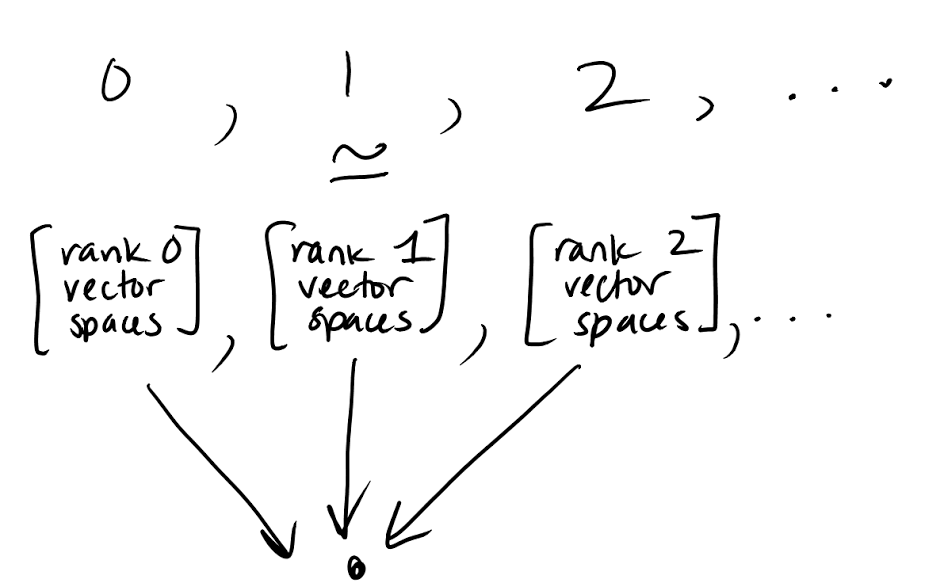 0 , 1 , 2 , . . .
≃
[rank 0 vector spaces] , [rank 1 vector spaces] , [rank 2 vector spaces] , . . .